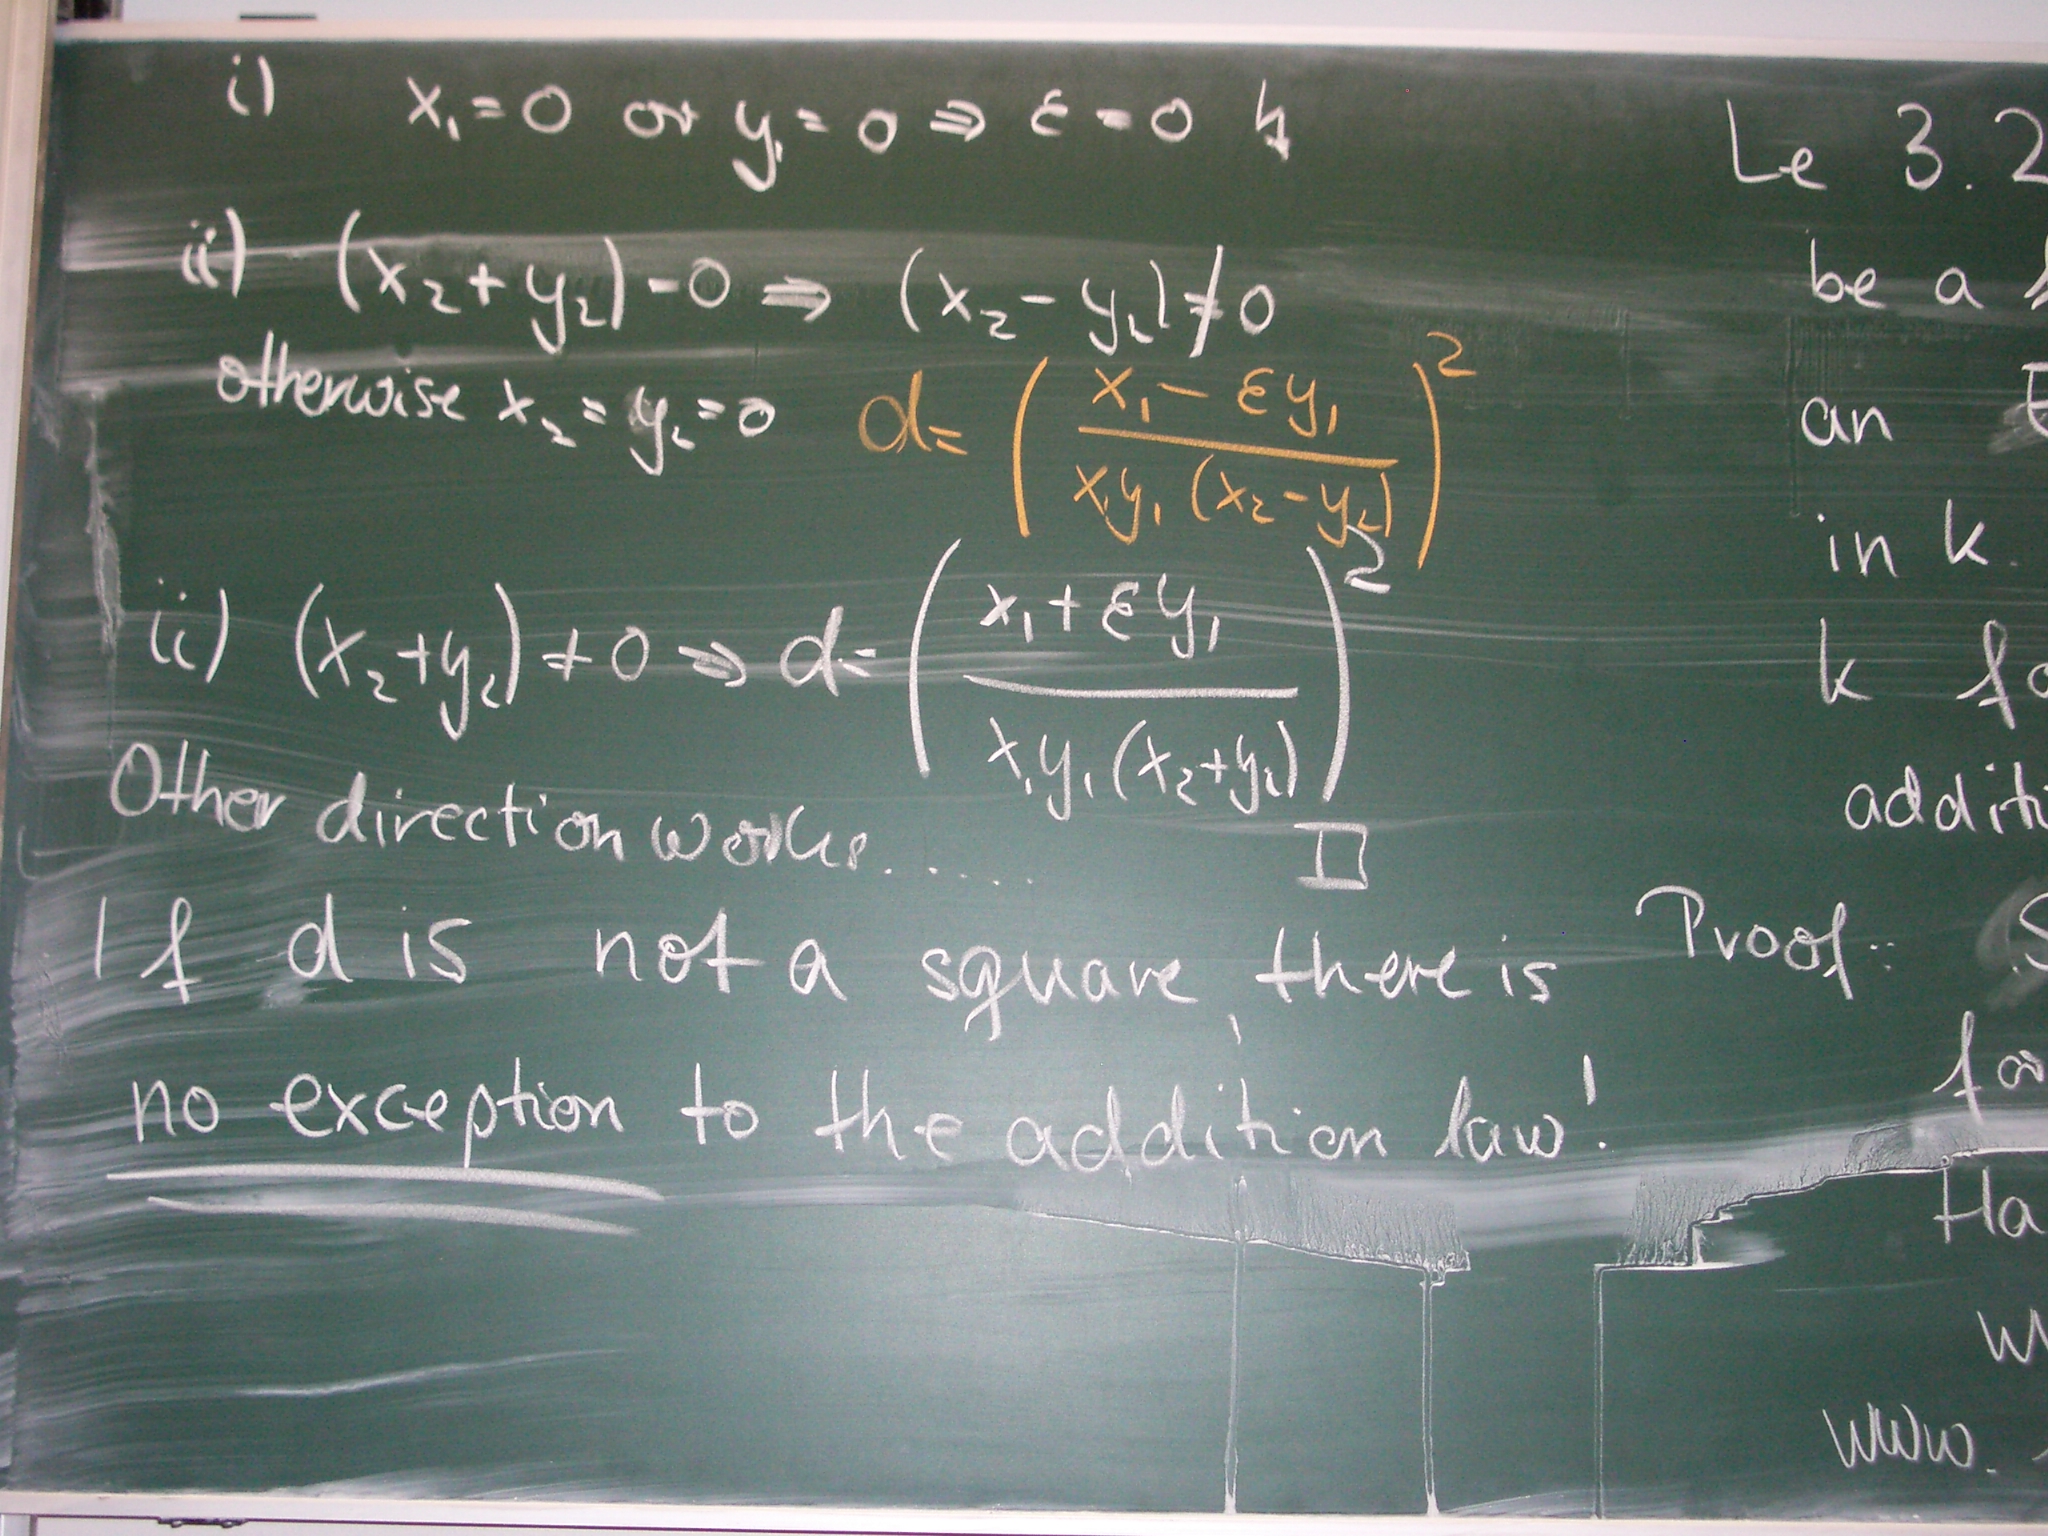 i) x₁ = 0 or y₁ = 0 ⇒ ε = 0 ↯
ii) (x₂ + y₂) = 0 ⇒ (x₂ - y₂) ≠ 0
otherwise x₂ = y₂ = 0 d = ( (x₁ - εy₁) / (x₁y₁ (x₂ - y₂)) )²
ii) (x₂ + y₂) ≠ 0 ⇒ d = ( (x₁ + εy₁) / (x₁y₁ (x₂ + y₂)) )²
Other direction works......
□
If d is not a square there is
no exception to the addition law!
Le 3.2
be a
an
in k.
k fo
additi
Proof:
for
Ha
www.